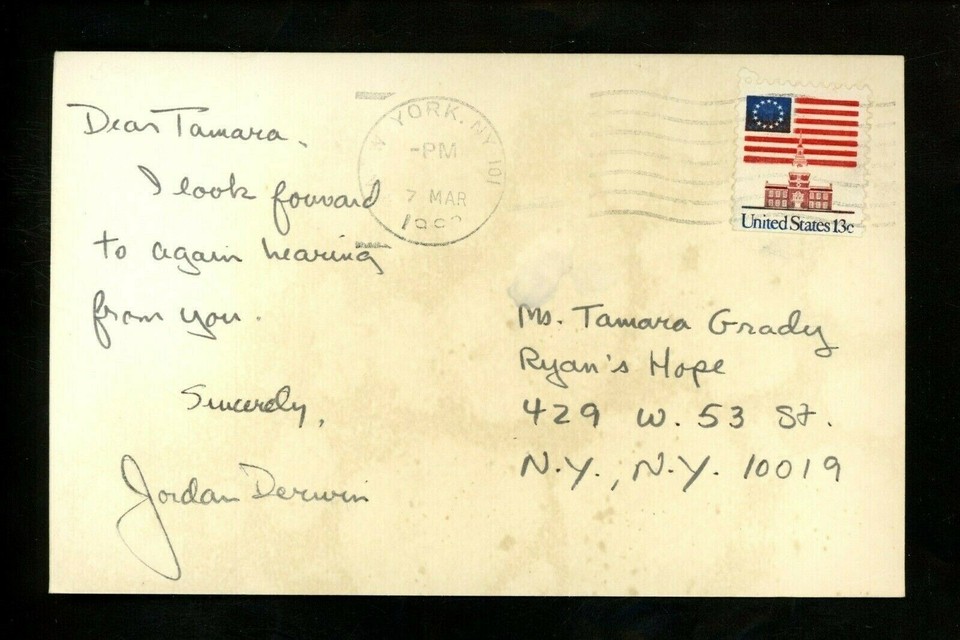 Dear Tamara,
I look forward
to again hearing
from you.
Sincerely,
Jordan Derwin
YORK, NY 101
-PM
7 MAR
United States 13c
Ms. Tamara Grady
Ryan's Hope
429 W. 53 St.
N.Y., N.Y. 10019